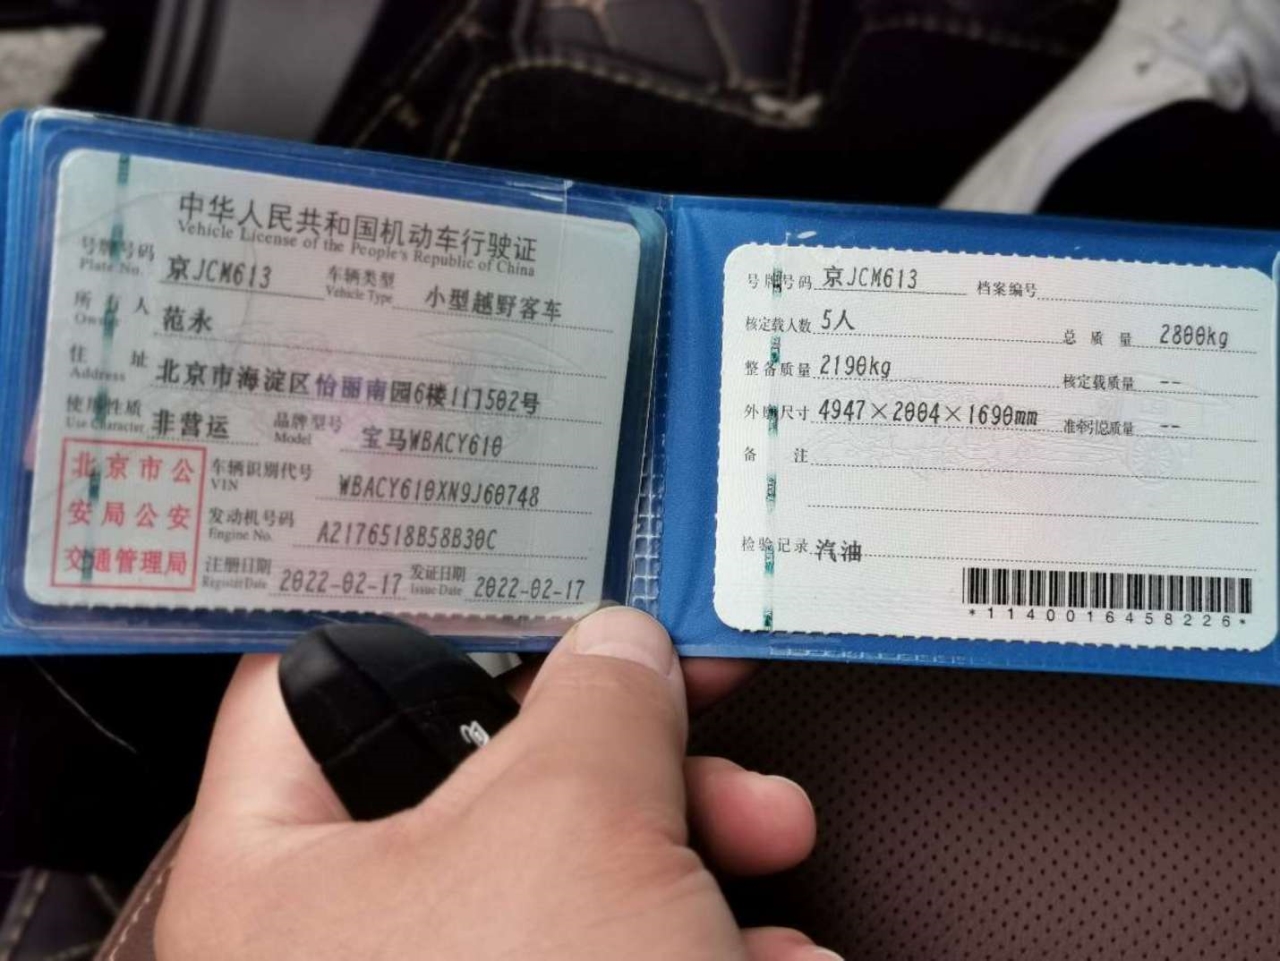 中华人民共和国机动车行驶证
Vehicle License of the People's Republic of China
号牌号码 京JCM613 车辆类型 小型越野客车
Plate No. Vehicle Type
所有人 范永
Owner
住址 北京市海淀区怡丽南园6楼11门502号
Address
使用性质 非营运 品牌型号 宝马WBACY610
Use Character Model
北京市公
安局公安
交通管理局
车辆识别代号 WBACY610XN9J60748
VIN
发动机号码 A2176518B58B30C
Engine No.
注册日期 2022-02-17 发证日期 2022-02-17
Register Date Issue Date
号牌号码 京JCM613 档案编号
核定载人数 5人 总质量 2800kg
整备质量 2190kg 核定载质量 --
外廓尺寸 4947×2004×1690mm 准牵引总质量 --
备注
检验记录 汽油
*1140016458226*